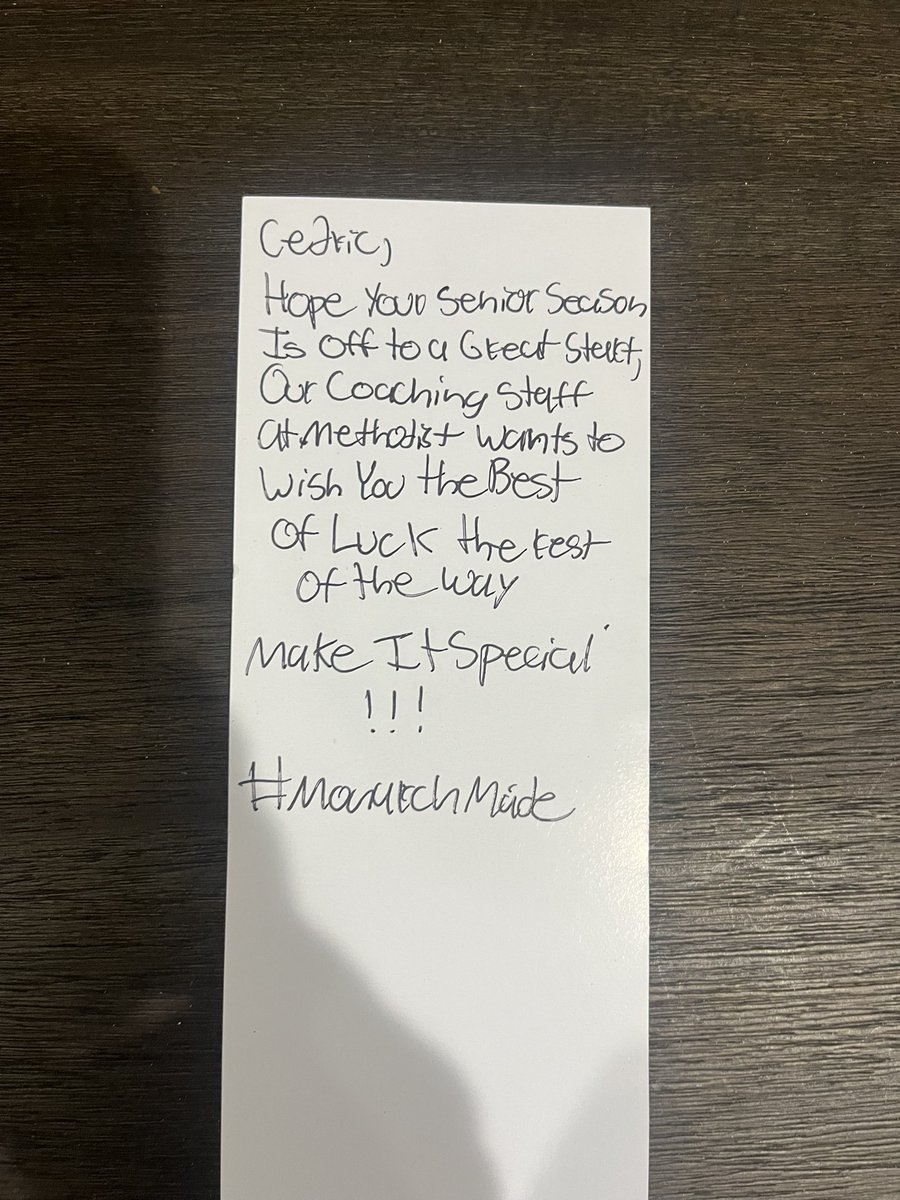 Cedric,
Hope Your Senior Season
Is Off to a Great Start,
Our Coaching Staff
at Methodist wants to
Wish You the Best
Of Luck the rest
Of the way
Make It Special
!!!
#MonarchMade